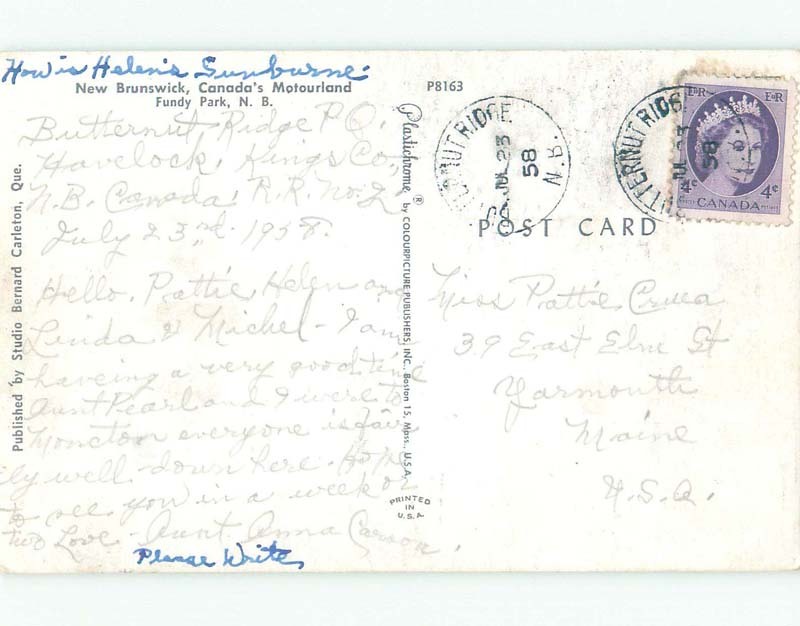 How is Helen's Sunburne.
New Brunswick, Canada's Motourland
Fundy Park, N. B.
P8163
Butternut Ridge P.O.
Havelock, Kings Co.,
N.B. Canada, R.R. No. 2
July 23rd 1958.
Hello, Pattie, Helen and
Linda & Michel - I am
haveing a very good time
Aunt Pearl and I were to
Moncton everyone is fair
ly well down here. Hope
to see you in a week or
two Love - Aunt Anna Carson.
Please Write,
Published by Studio Bernard Carleton, Que.
Plastichrome ® by COLOURPICTURE PUBLISHERS, INC., Boston 15, Mass., U.S.A.
PRINTED
IN
U.S.A.
BUTTERNUT RIDGE
JUL 23
58
N.B.
BUTTERNUT RIDGE
JUL 23
58
E II R E II R
4¢ 4¢
CANADA
POST CARD
Miss Pattie
39 East Elm St
Yarmouth
Maine
U.S.A.